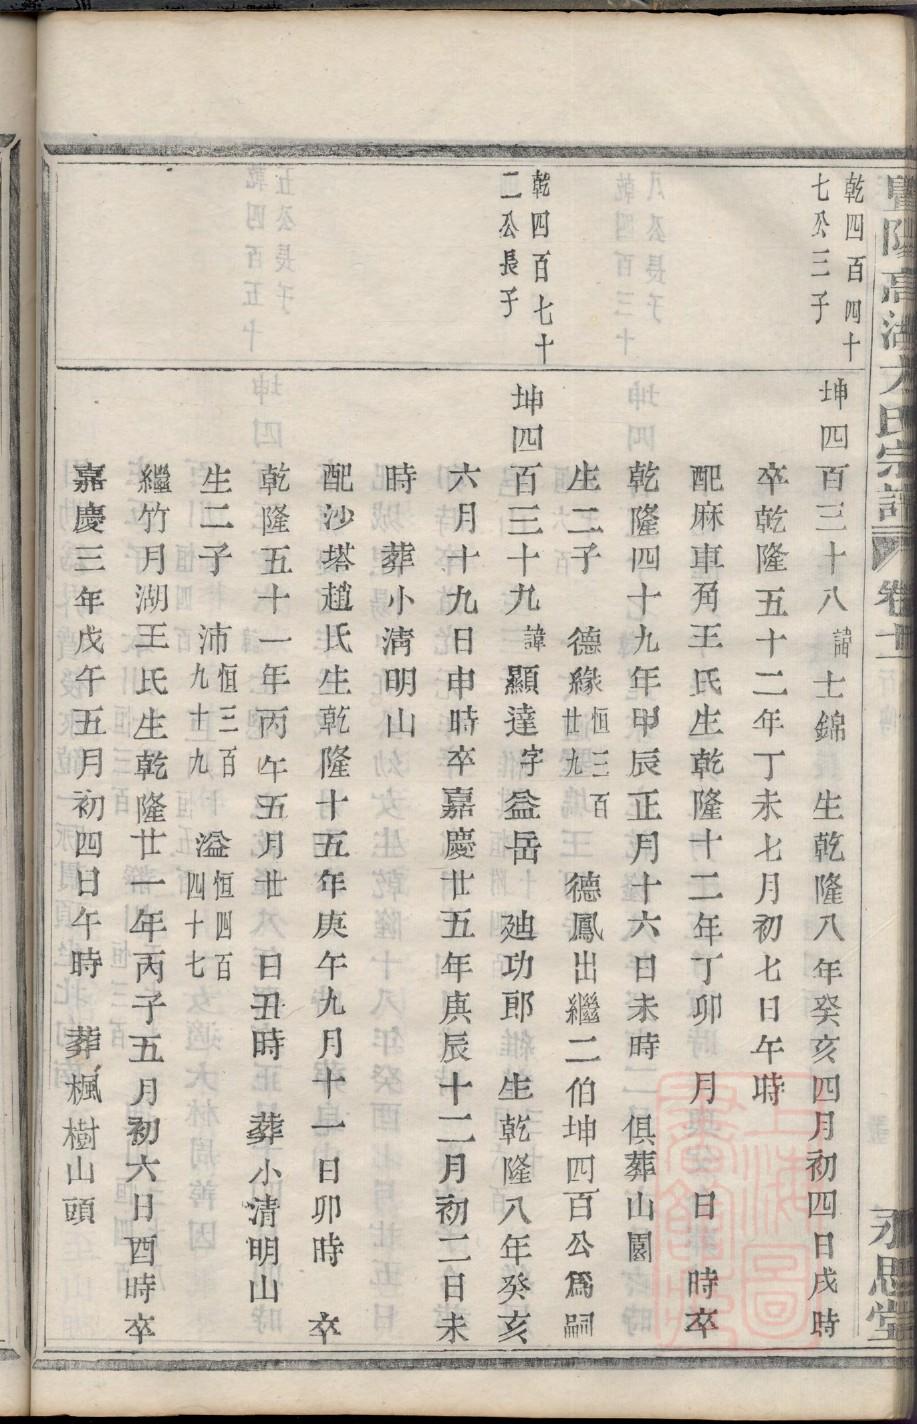 豊陽高湖方氏宗譜 卷十 永思堂
乾四百四十
七公三子
坤四百三十八諱士錦 生乾隆八年癸亥四月初四日戌時
卒乾隆五十二年丁未七月初七日午時
配麻車角王氏生乾隆十二年丁卯 月 日 時卒
乾隆四十九年甲辰正月十六日未時 俱葬山園
生二子 德緣恒三百廿九 德鳳出繼二伯坤四百公爲嗣
乾四百七十
二公長子
坤四百三十九諱顯達字益岳 廸功郎 生乾隆八年癸亥
六月十九日申時卒嘉慶廿五年庚辰十二月初二日未
時 葬小淸明山
配沙塔趙氏生乾隆十五年庚午九月十一日卯時 卒
乾隆五十一年丙午五月廿 日丑時 葬小清明山
生二子 沛恒三百九十九 溢恒四百四十七
繼竹月湖王氏生乾隆廿一年丙子五月初六日酉時卒
嘉慶三年戊午五月初四日午時 葬楓樹山頭